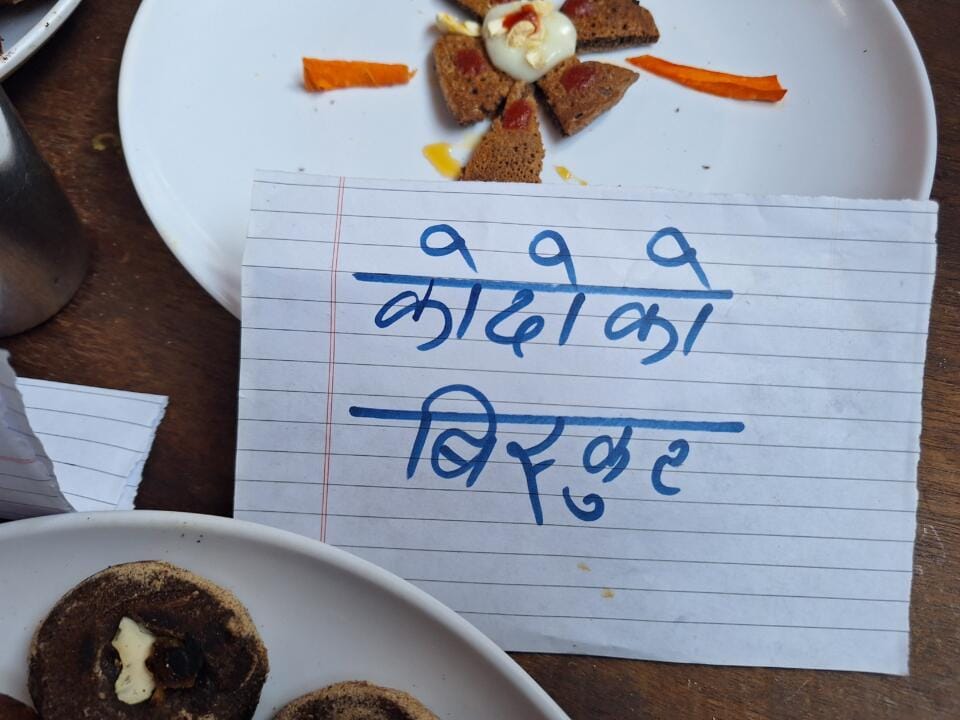 कोदोको
बिस्कुट